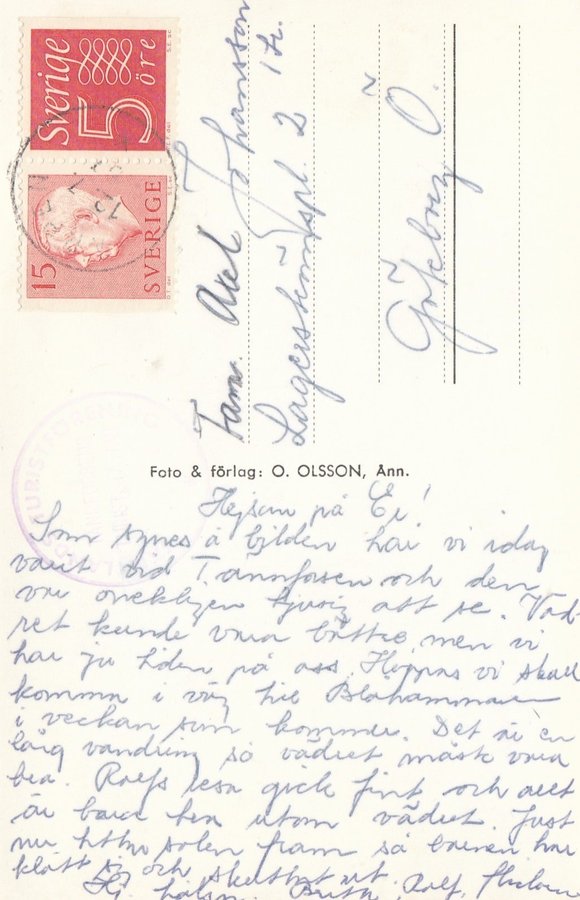 Sverige
5
öre
15
SVERIGE
Fam. Axel Johansson
Lagerströmspl. 2 1 tr.
Göteborg Ö.
TURISTFÖRENING
Foto & förlag: O. OLSSON, Ånn.
Hejsan på Er!
Som synes å bilden har vi idag
varit vid Tännforsen och den
var onekligen tjusig att se. Väd-
ret kunde vara bättre men vi
har ju tiden på oss. Hoppas vi skall
komma i väg till Blåhammaren
i veckan som kommer. Det är en
lång vandring så vädret måste vara
bra. Rolfs resa gick fint och allt
är bara bra utom vädret. Just
nu tittar solen fram så barnen har
klätt sig och skuttat ut.
Hj. hälsn. Britta, Rolf,